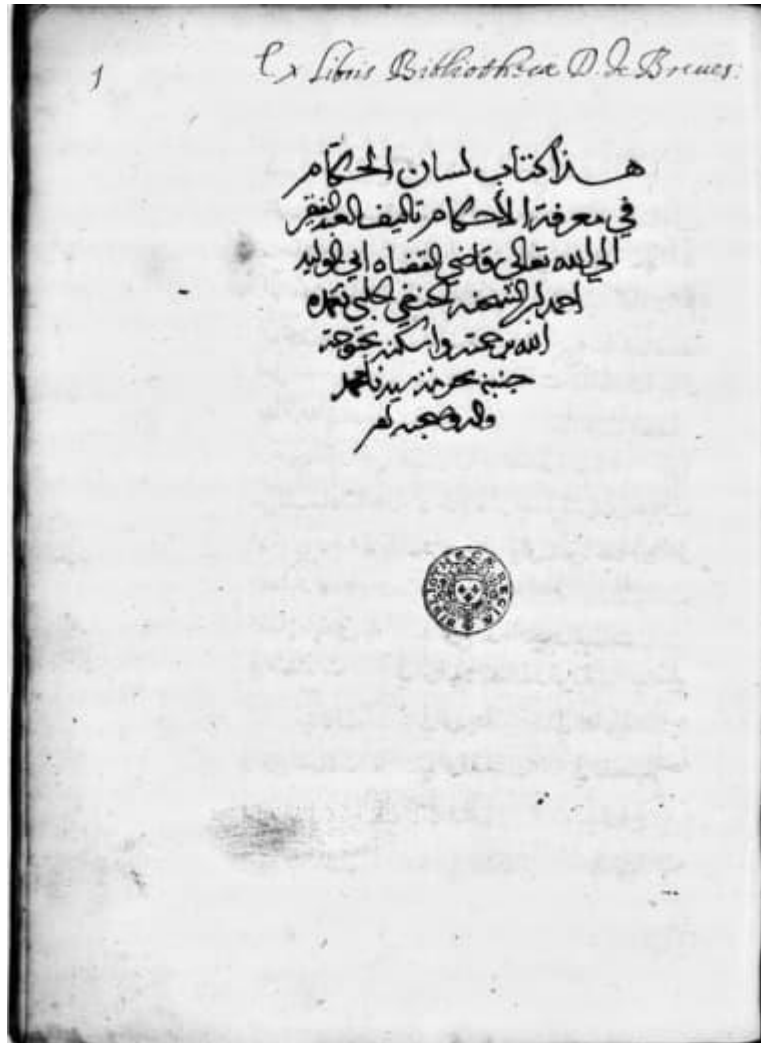 Ex Libris Bibliothecæ D. de Breves.
1
هذا كتاب لسان الحكام
في معرفة الأحكام تاليف العبد الفقير
الي الله تعالى قاضي القضاه ابي الوليد
احمد ابن الشحنه الحنفي الحلبي تغمده
الله برحمته واسكنه بحبوحة
جنته بحرمة سيدنا محمد
واله وصحبه
BIBLIOTHECÆ REGIÆ